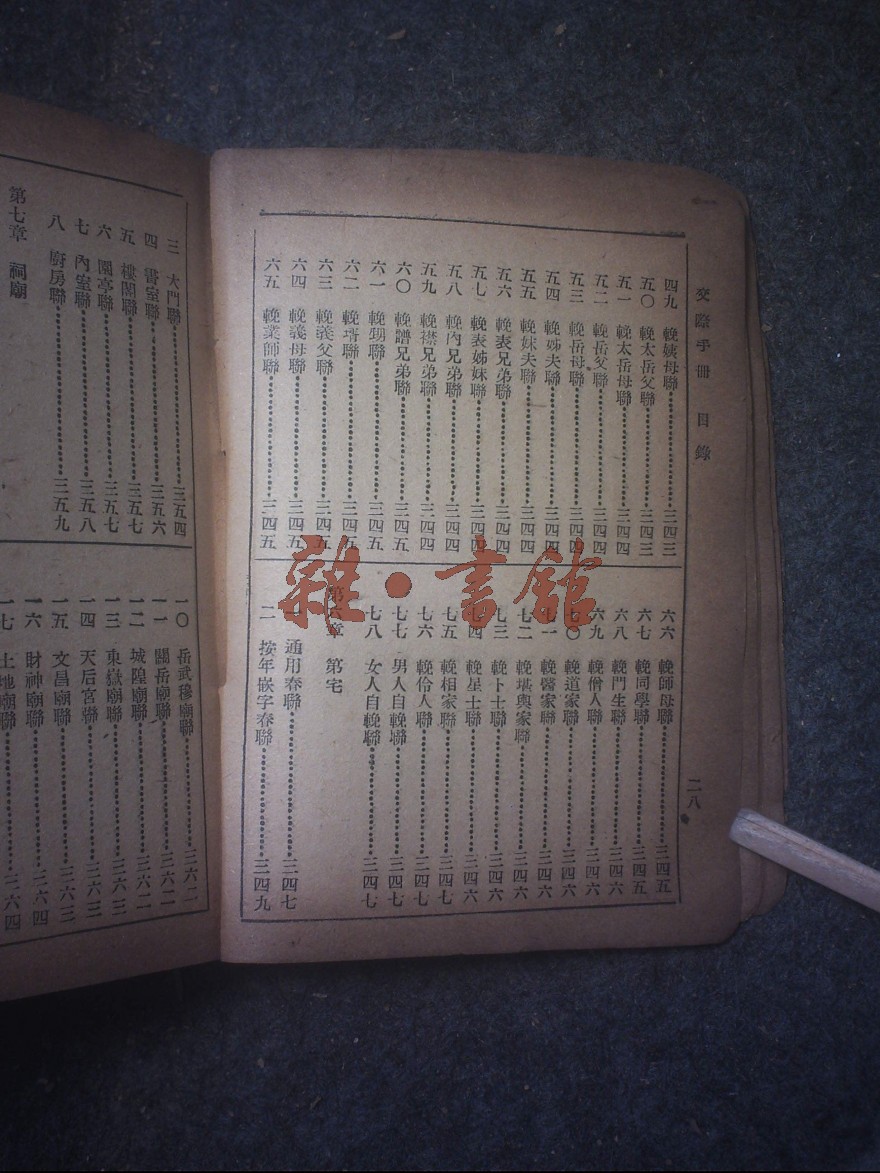 交際手冊 目錄
四九 輓姨母聯 三四三
五〇 輓太岳父聯 三四三
五一 輓太岳母聯 三四四
五二 輓岳父聯 三四四
五三 輓岳母聯 三四四
五四 輓姊夫聯 三四四
五五 輓妹夫聯 三四四
五六 輓表兄弟聯 三四四
五七 輓表姊妹聯 三四四
五八 輓內兄弟聯 三四四
五九 輓襟兄弟聯 三四四
六〇 輓譜兄弟聯 三四五
六一 輓甥聯 三四五
六二 輓壻聯 三四五
六三 輓義父聯 三四五
六四 輓義母聯 三四五
六五 輓業師聯 三四五
六六 輓師母聯 三四五
六七 輓同學聯 三四五
六八 輓門生聯 三四六
六九 輓僧人聯 三四六
七〇 輓道家聯 三四六
七一 輓醫家聯 三四六
七二 輓堪輿家聯 三四六
七三 輓卜士聯 三四六
七四 輓星士聯 三四六
七五 輓相家聯 三四七
七六 輓伶人聯 三四七
七七 男人自輓聯 三四七
七八 女人自輓聯 三四七
第六章 第宅
一 通用春聯 三四七
二 按年嵌字春聯 三四九
二八
三 大門聯 三五四
四 書室聯 三五六
五 樓閣聯 三五七
六 園亭聯 三五七
七 內室聯 三五八
八 廚房聯 三五九
第七章 祠廟
一〇 岳武穆廟聯 三六二
一一 關岳廟聯 三六二
一二 城隍廟聯 三六二
一三 東嶽廟聯 三六三
一四 天后宮聯 三六三
一五 文昌廟聯 三六三
一六 財神廟聯 三六四
一七 土地廟聯 三六四
雜·書館